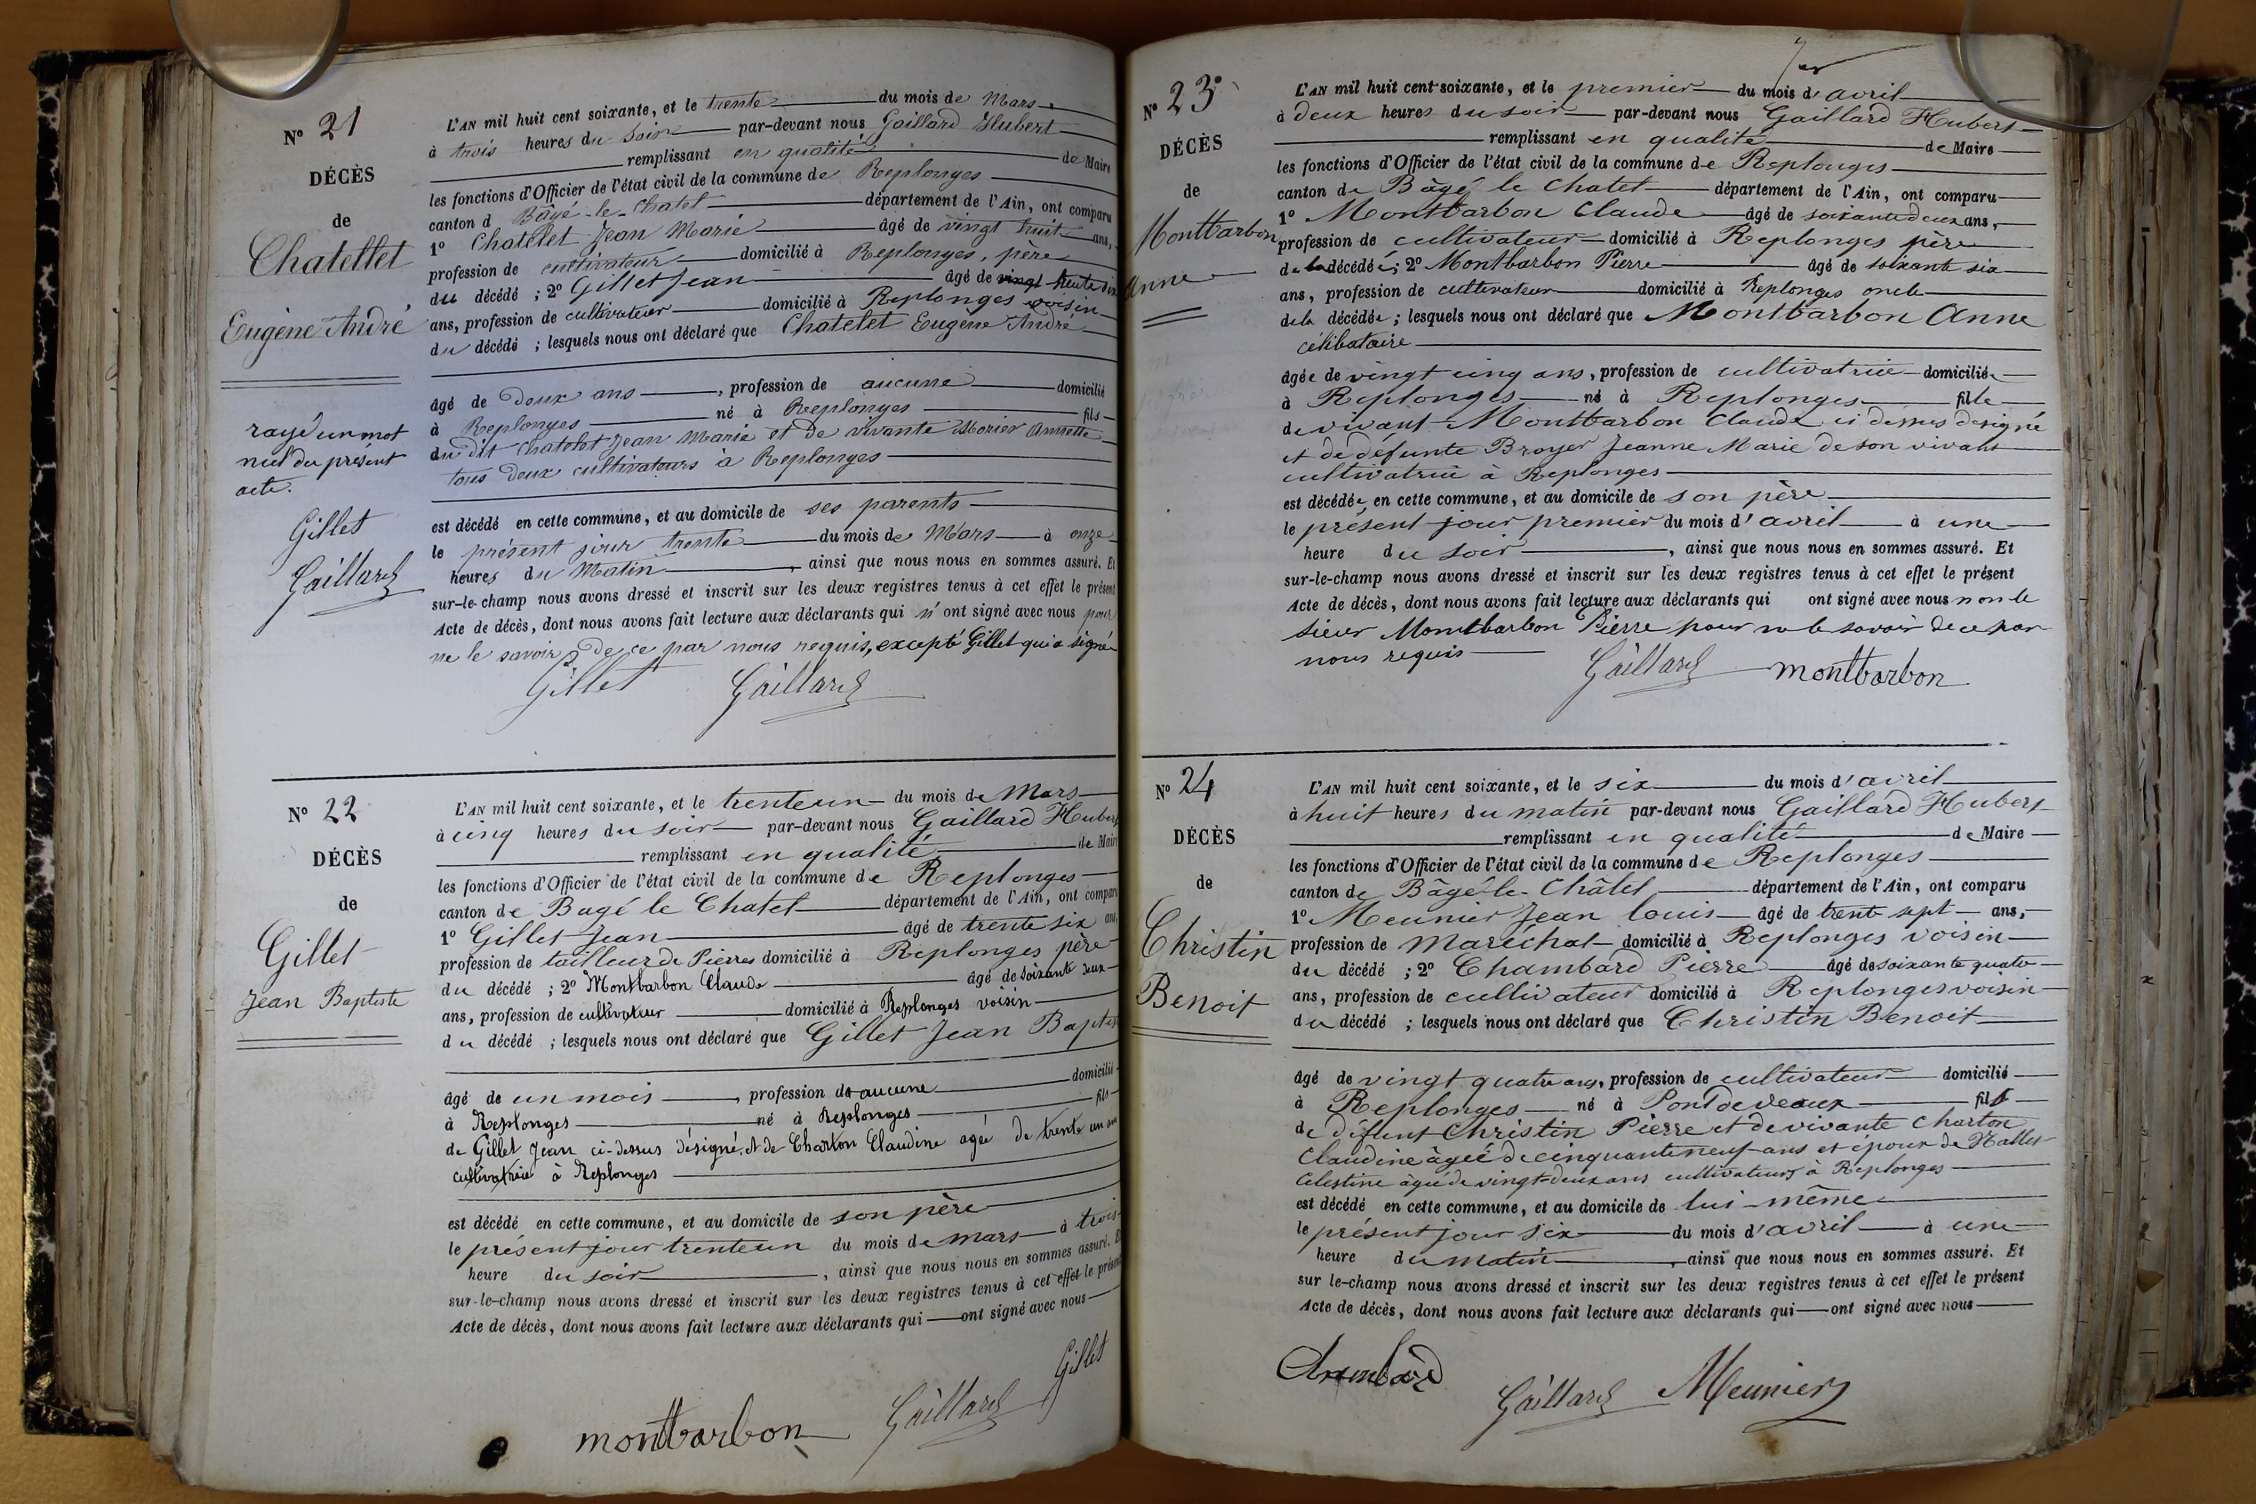 Nº 21
DÉCÈS
de
Chatellet
Eugène André
rayé un mot
nul du présent
acte.
Gillet
Gaillard
L'AN mil huit cent soixante, et le trente du mois de Mars
à trois heures du soir par-devant nous Gaillard Hubert
remplissant en qualité de Maire
les fonctions d'Officier de l'état civil de la commune de Replonges
canton d Bâgé-le-Chatel département de l'Ain, ont comparu
1º Chatelet Jean Marie âgé de vingt huit ans,
profession de cultivateur domicilié à Replonges, père
du décédé ; 2º Gillet Jean âgé de vingt trente six
ans, profession de cultivateur domicilié à Replonges voisin
du décédé ; lesquels nous ont déclaré que Chatelet Eugène André
âgé de deux ans, profession de aucune domicilié
à Replonges né à Replonges fils
du dit Chatelet Jean Marie et de vivante Morier Annette
tous deux cultivateurs à Replonges
est décédé en cette commune, et au domicile de ses parents
le présent jour trente du mois de Mars à onze
heures du Matin, ainsi que nous nous en sommes assuré. Et
sur-le-champ nous avons dressé et inscrit sur les deux registres tenus à cet effet le présent
Acte de décès, dont nous avons fait lecture aux déclarants qui n'ont signé avec nous pour
ne le savoir de ce par nous requis, excepté Gillet qui a signé
Gillet Gaillard
Nº 22
DÉCÈS
de
Gillet
Jean Baptiste
L'AN mil huit cent soixante, et le trente un du mois de Mars
à cinq heures du soir par-devant nous Gaillard Hubert
remplissant en qualité de Maire
les fonctions d'Officier de l'état civil de la commune de Replonges
canton de Bagé le Chatel département de l'Ain, ont comparu
1º Gillet Jean âgé de trente six ans,
profession de tailleur de Pierres domicilié à Replonges père
du décédé ; 2º Montbarbon Claude âgé de soixante deux
ans, profession de cultivateur domicilié à Replonges voisin
du décédé ; lesquels nous ont déclaré que Gillet Jean Baptiste
âgé de un mois, profession de aucune domicilié
à Replonges né à Replonges fils
de Gillet Jean ci-dessus désigné, et de Charton Claudine agée de trente un ans
cultivatrice à Replonges
est décédé en cette commune, et au domicile de son père
le présent jour trente un du mois de mars à trois
heure du soir, ainsi que nous nous en sommes assuré. Et
sur-le-champ nous avons dressé et inscrit sur les deux registres tenus à cet effet le présent
Acte de décès, dont nous avons fait lecture aux déclarants qui ont signé avec nous
Gillet
montbarbon Gaillard
Nº 23
DÉCÈS
de
Montbarbon
Anne
L'AN mil huit cent soixante, et le premier du mois d'avril
à deux heures du soir par-devant nous Gaillard Hubert
remplissant en qualité de Maire
les fonctions d'Officier de l'état civil de la commune de Replonges
canton de Bâgé le Chatel département de l'Ain, ont comparu
1º Montbarbon Claude âgé de soixante deux ans,
profession de cultivateur domicilié à Replonges père
de la décédée ; 2º Montbarbon Pierre âgé de soixante six
ans, profession de cultivateur domicilié à Replonges oncle
de la décédée ; lesquels nous ont déclaré que Montbarbon Anne
célibataire
âgée de vingt cinq ans, profession de cultivatrice domiciliée
à Replonges né à Replonges fille
de vivant Montbarbon Claude ci dessus désigné
et de défunte Broyer Jeanne Marie de son vivant
cultivatrice à Replonges
est décédée en cette commune, et au domicile de son père
le présent jour premier du mois d'avril à une
heure du soir, ainsi que nous nous en sommes assuré. Et
sur-le-champ nous avons dressé et inscrit sur les deux registres tenus à cet effet le présent
Acte de décès, dont nous avons fait lecture aux déclarants qui ont signé avec nous non le
sieur Montbarbon Pierre pour ne le savoir de ce par
nous requis
Gaillard montbarbon
Nº 24
DÉCÈS
de
Christin
Benoit
L'AN mil huit cent soixante, et le six du mois d'avril
à huit heures du matin par-devant nous Gaillard Hubert
remplissant en qualité de Maire
les fonctions d'Officier de l'état civil de la commune de Replonges
canton de Bâgé-le-Châtel département de l'Ain, ont comparu
1º Meunier Jean Louis âgé de trente sept ans,
profession de Maréchal domicilié à Replonges voisin
du décédé ; 2º Chambard Pierre âgé de soixante quatre
ans, profession de cultivateur domicilié à Replonges voisin
du décédé ; lesquels nous ont déclaré que Christin Benoit
âgé de vingt quatre ans, profession de cultivateur domicilié
à Replonges né à Pont de veaux fils
de défunt Christin Pierre et de vivante Charton
Claudine âgée de cinquante neuf ans et époux de Hallet
Celestine âgée de vingt-deux ans cultivateurs à Replonges
est décédé en cette commune, et au domicile de lui même
le présent jour six du mois d'avril à une
heure du matin, ainsi que nous nous en sommes assuré. Et
sur le-champ nous avons dressé et inscrit sur les deux registres tenus à cet effet le présent
Acte de décès, dont nous avons fait lecture aux déclarants qui ont signé avec nous
Chambard Gaillard Meunier